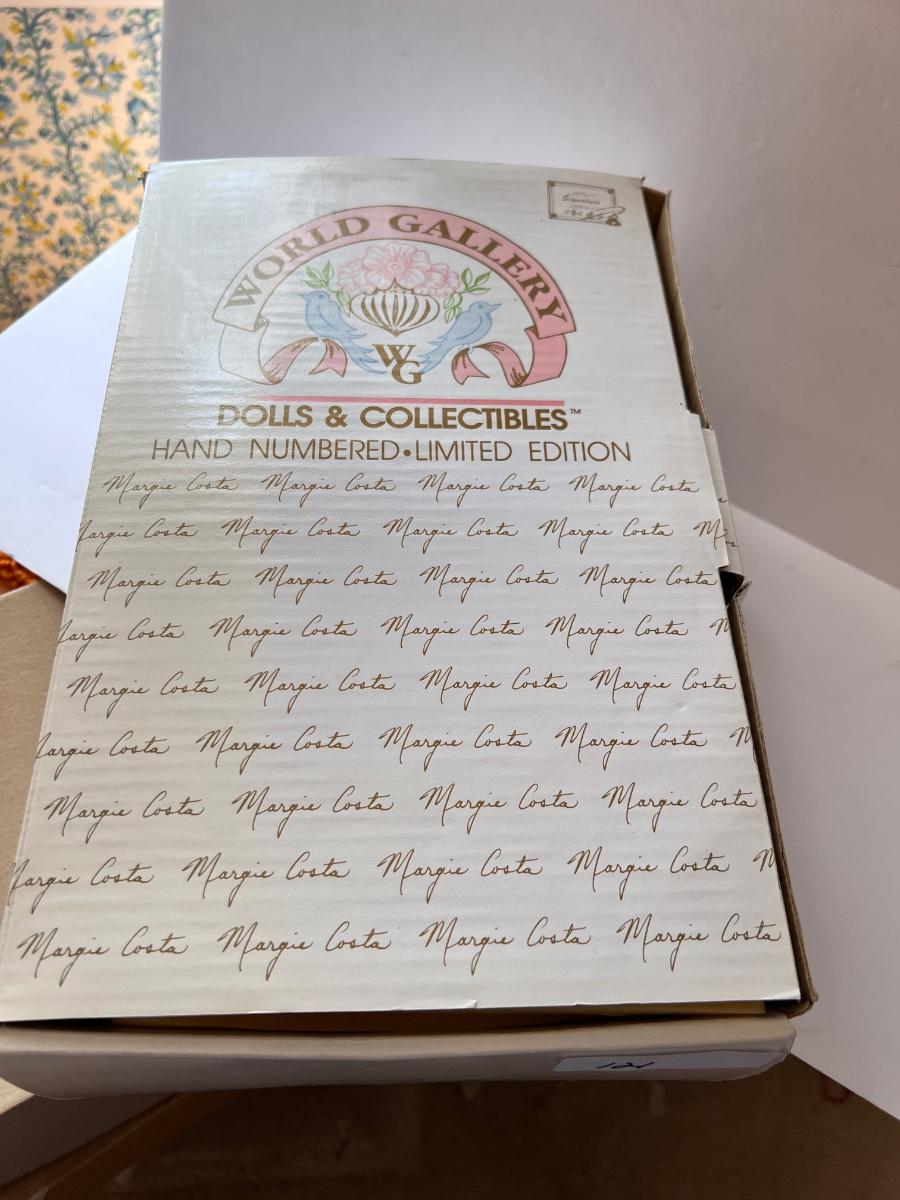 Signature
WORLD GALLERY
WG
DOLLS & COLLECTIBLES™
HAND NUMBERED•LIMITED EDITION
Margie Costa Margie Costa Margie Costa Margie Costa
argie Costa Margie Costa Margie Costa Margie Costa M
Margie Costa Margie Costa Margie Costa Margie Costa
argie Costa Margie Costa Margie Costa Margie Costa M
Margie Costa Margie Costa Margie Costa Margie Costa
argie Costa Margie Costa Margie Costa Margie Costa M
Margie Costa Margie Costa Margie Costa Margie Costa
argie Costa Margie Costa Margie Costa Margie Costa M
Margie Costa Margie Costa Margie Costa Margie Costa